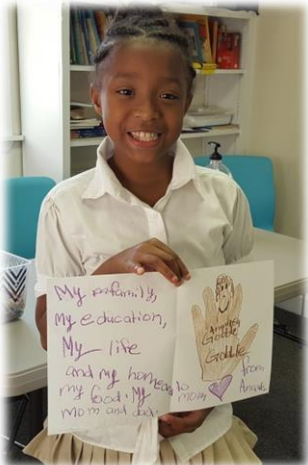 My family,
my education,
My life
and my home
my food. My
mom and dad.
Gobble
Gobble
to
mom
from